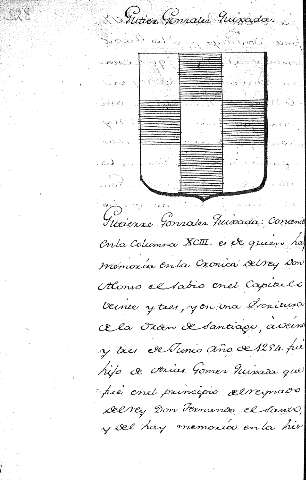 Gutier Gonzales Quixada.
Gutierre Gonzales Quixada: Conten
en la Columna XCIII. es de quien hay
memoria en la Cronica del rey Don
Alonso el Sabio en el Capitulo
veinte y tres, y en una Escritura
de la Orden de Santiago, à veinte
y tres de Junio año de 1254. fué
hijo de Arias Gomez Quixada que
fué en el principio del reynado
del rey Don Fernando el Santo,
y del hay memoria en la his